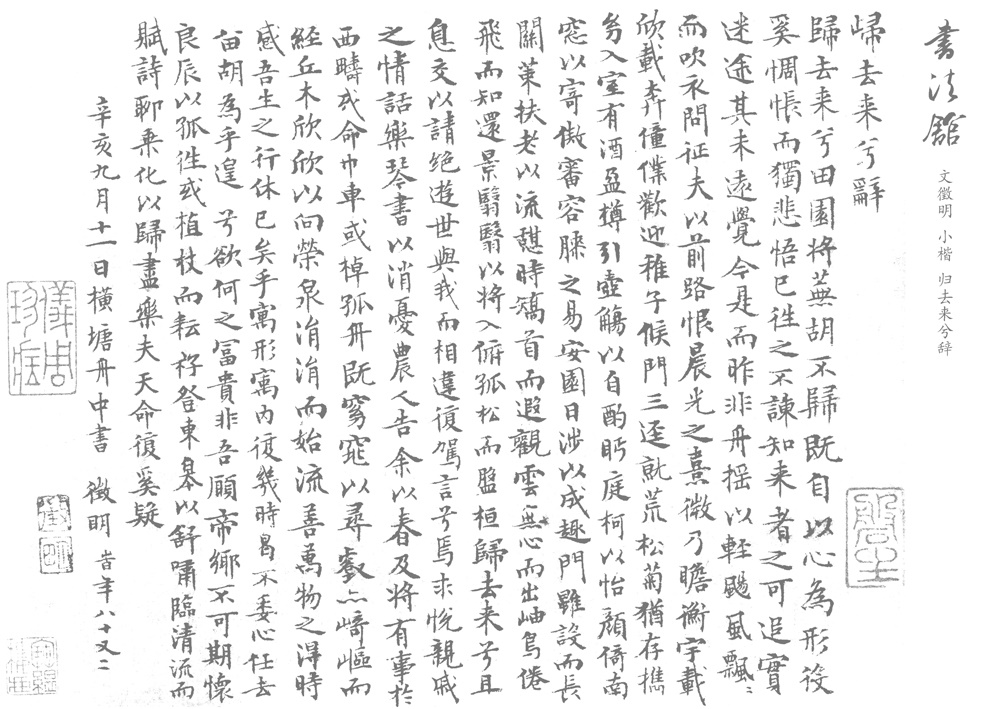 書法館
文徵明 小楷 归去来兮辞
歸去来兮辭
歸去来兮田園将蕪胡不歸既自以心為形役
奚惆悵而獨悲悟已往之不諫知来者之可追實
迷途其未遠覺今是而昨非舟摇以輕颺風飄〻
而吹衣問征夫以前路恨晨光之熹微乃瞻衡宇載
欣載奔僮僕歡迎稚子候門三逕就荒松菊猶存携
幼入室有酒盈樽引壺觴以自酌眄庭柯以怡顔倚南
窓以寄傲審容膝之易安園日涉以成趣門雖設而長
關策扶老以流憩時矯首而遐觀雲無心而出岫鳥倦
飛而知還景翳翳以将入俯孤松而盤桓歸去来兮且
息交以請絶遊世與我而相違復駕言兮焉求悅親戚
之情話樂琴書以消憂農人告余以春及将有事於
西疇或命巾車或棹孤舟既窈窕以尋壑亦崎嶇而
經丘木欣欣以向榮泉涓涓而始流善萬物之得時
感吾生之行休已矣乎寓形寓内復幾時曷不委心任去
留胡為乎遑 兮欲何之富貴非吾願帝鄉不可期懷
良辰以孤往或植杖而耘秄登東皋以舒嘯臨清流而
賦詩聊乗化以歸盡樂夫天命復奚疑
辛亥九月十一日横塘舟中書 徵明 旹年八十又二
儀周珍藏